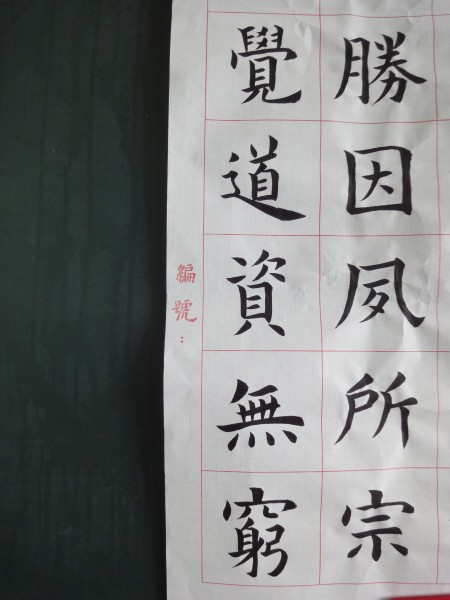 勝因夙所宗
覺道資無窮
編號：